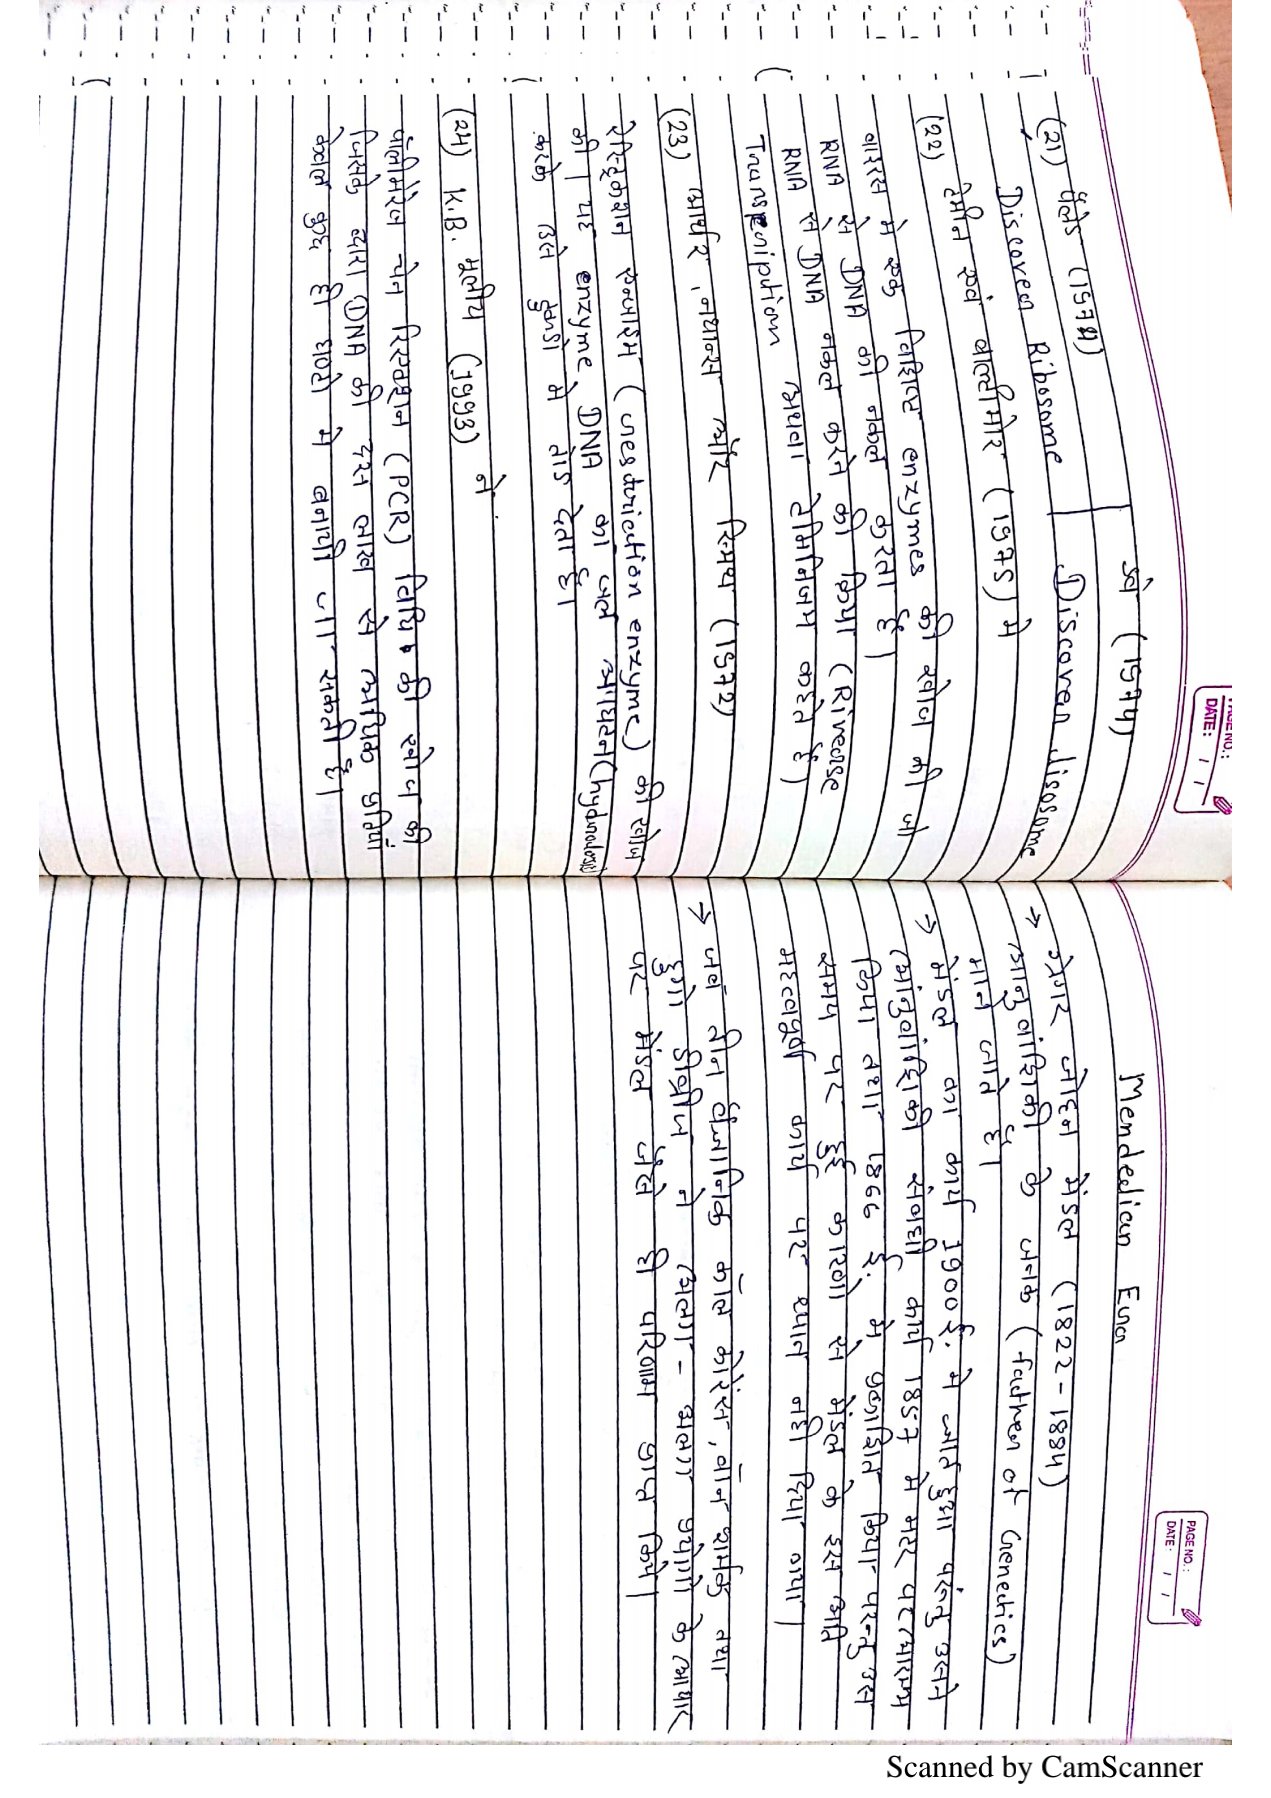 PAGE NO.:
DATE: / /
(21) पैलेड (1974)
Discover Ribosome
डुवे (1974)
Discover lisosome
(22) टेमीन एवं वाल्टीमोर (1975) ने
वाइरस मे एक विशिष्ट enzymes की खोज की जो
RNA से DNA की नकल करता है।
RNA से DNA नकल करने की क्रिया (Riverse
Transcription अथवा टेमिनिजम कहते है)
(23) आर्बर, नथान्स और स्मिथ (1972)
रेस्ट्रिक्शन एन्जाइम (restriction enzyme) की खोज
की। यह enzyme DNA का जल अपघटन (hydrolosis)
करके उसे टुकडो मे तोड देता है।
(24) K.B. मुलीय (1993) ने
पॉलीमेरेज चेन रिएक्शन (PCR) विधि की खोज की
जिसके द्वारा DNA की दस लाख से अधिक प्रतियां
केवल कुछ ही घण्टो मे बनायी जा सकती है।
PAGE NO.:
DATE: / /
Mendelian Era
→ ग्रेगर जोहन मेंडल (1822-1884)
आनुवांशिकी के जनक (father of Genetics)
माने जाते है।
→ मेंडल का कार्य 1900 ई. मे ज्ञात हुआ परंन्तु उसने
आंनुवांशिकी संबंधी कार्य 1857 मे मटर पर प्रारम्भ
किया तथा 1866 ई. मे प्रकाशित किया परन्तु उस
समय पर हुई कारणो से मेंडल के इस अति
महत्वपूर्ण कार्य पर ध्यान नही दिया गया।
→ जब तीन वैज्ञानिक कॉल कोरेंस, वॉन शर्माक तथा
हुगो डीब्रीज ने अलग-अलग प्रयोगो के आधार
पर मेंडल जैसे ही परिणाम प्राप्त किये।
Scanned by CamScanner